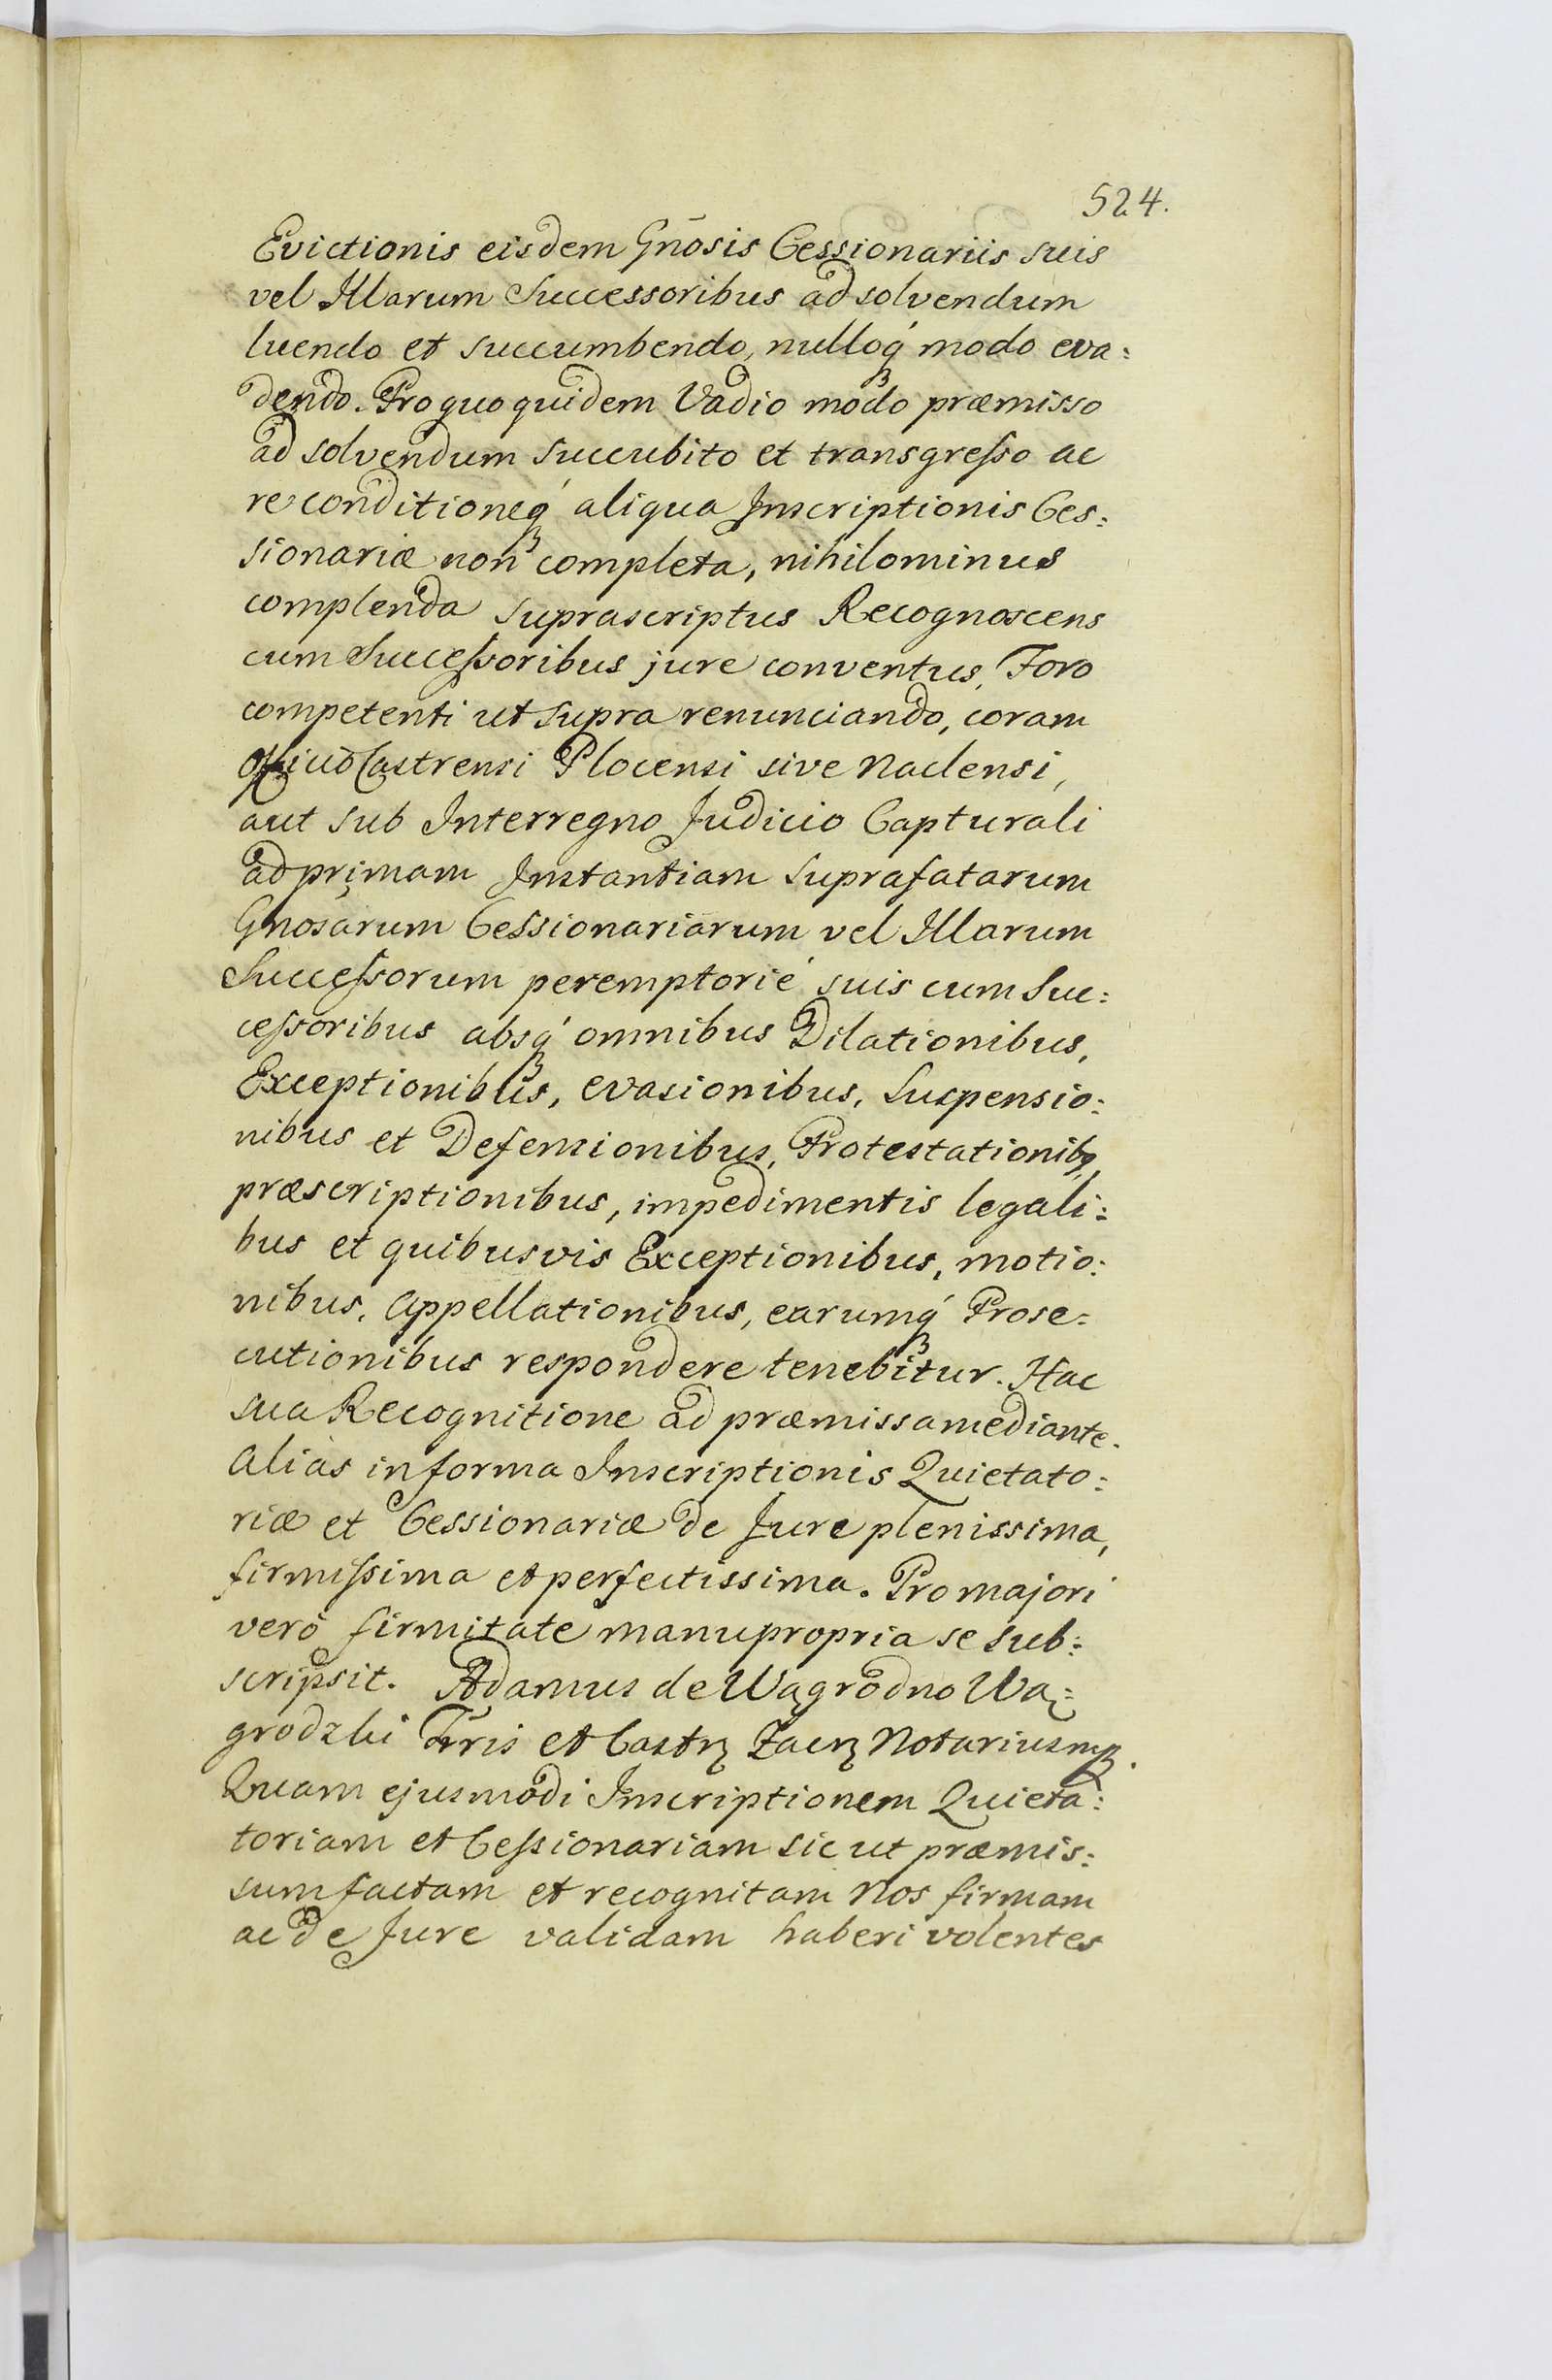 524.
Evictionis eisdem Gnōsis Cessionariis suis
vel Illarum Successoribus ad solvendum
luendo et succumbendo, nulloq́ꝫ modo eva:
dendo. Pro quo quidem Vadio modo præmisso
ad solvendum succubito et transgreſso ac
re conditioneq́ꝫ aliqua Inscriptionis Ces:
sionariæ non completa, nihilominus
complenda suprascriptus Recognoscens
cum Succeſsoribus jure conventus, Foro
competenti ut supra renunciando, coram
Officio Castrensi Plocensi sive Naclensi,
aut sub Interregno Judicio Capturali
ad primam Instantiam suprafatarum
Gnosarum Ceſsionariarum vel Illarum
Succeſsorum peremptorié suis cum Suc:
ceſsoribus absq́ꝫ omnibus Dilationibus,
Exceptionibus, evasionibus, Suspensio:
nibus et Defensionibus, Protestationibꝫ,
præscriptionibus, impedimentis legali:
bus et quibusvis Exceptionibus, motio:
nibus, Appellationibus, earumq́ꝫ Prose:
cutionibus respondere tenebitur. Hac
sua Recognitione ad præmissa mediante.
Alias in forma Inscriptionis Quietato:
riæ et Cessionariæ de Jure plenissima,
firmiſsima et perfectissima. Pro majori
verò firmitate manu propria se sub:
scripsit. Adamus de Wągrodno Wą:
grodzki Trris et Castrꝫ Zacrꝫ Notarius mp.
Quam ejusmodi Inscriptionem Quieta:
toriam et Ceſsionariam sic ut præmis:
sum factam et recognitam Nos firmam
ac de Jure validam haberi volentes